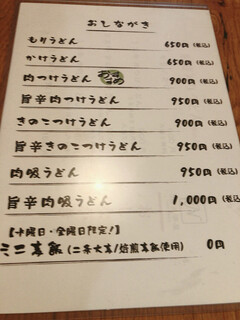 おしながき
もりうどん 650円(税込)
かけうどん 650円(税込)
肉つけうどん おすすめ 900円(税込)
旨辛肉つけうどん 950円(税込)
きのこつけうどん 900円(税込)
旨辛きのこつけうどん 950円(税込)
肉吸うどん 950円(税込)
旨辛肉吸うどん 1,000円(税込)
【十曜日・金曜日限定!】
ミニ麦飯(二条大麦/焙煎麦飯使用) 0円